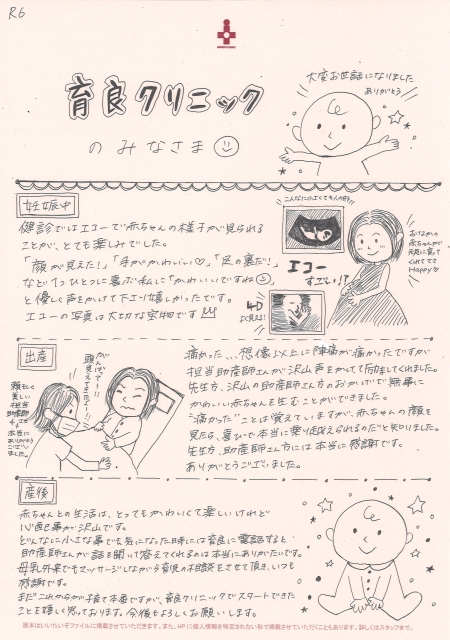 R6
育良クリニック
のみなさま
大変お世話になりました
ありがとう
妊娠中
健診ではエコーで赤ちゃんの様子が見られる
ことが、とても楽しみでした。
「顔が見えた!」「手がかわいい♡」「足の裏だ!」
など1つひとつに喜ぶ私に「かわいいですね」
と優しく声をかけて下さり嬉しかったです。
エコーの写真は大切な宝物です
こんなに小さくても人の形!!
エコー
すごい!?
4D
よく見える!
おなかの
赤ちゃんが
元気に育って
くれてて
Happy♡
出産
がんばってー!!
頭見えてきたよー!!
頼もしく
美しい
担当
助産師
さま
本当に
ありがとう
ございました。
痛かった…想像以上に陣痛が痛かったですが
担当助産師さんが沢山声をかけて励ましてくれました。
先生方、沢山の助産師さん方のおかげで無事に
かわいい赤ちゃんを生むことができました。
"痛かった"ことは覚えていますが、赤ちゃんの顔を
見たら、喜びで本当に乗り越えられるのだと知りました。
先生方、助産師さん方には本当に感謝です。
ありがとうございました。
産後
赤ちゃんとの生活は、とってもかわいくて楽しいけれど
心配事が沢山です。
どんなに小さな事でも気になった時には育良に電話すると
助産師さんが話を聞いて答えてくれるのは本当にありがたいです。
母乳外来でもマッサージしながら育児の相談をさせて頂き、いつも
感謝です。
まだこれからが子育て本番ですが、育良クリニックでスタートできた
ことを嬉しく思っております。今後もよろしくお願いします。
原本はいいたいぞファイルに掲載させていただきます。また、HPに個人情報を特定されない形で掲載させていただくこともあります。詳しくはスタッフまで。